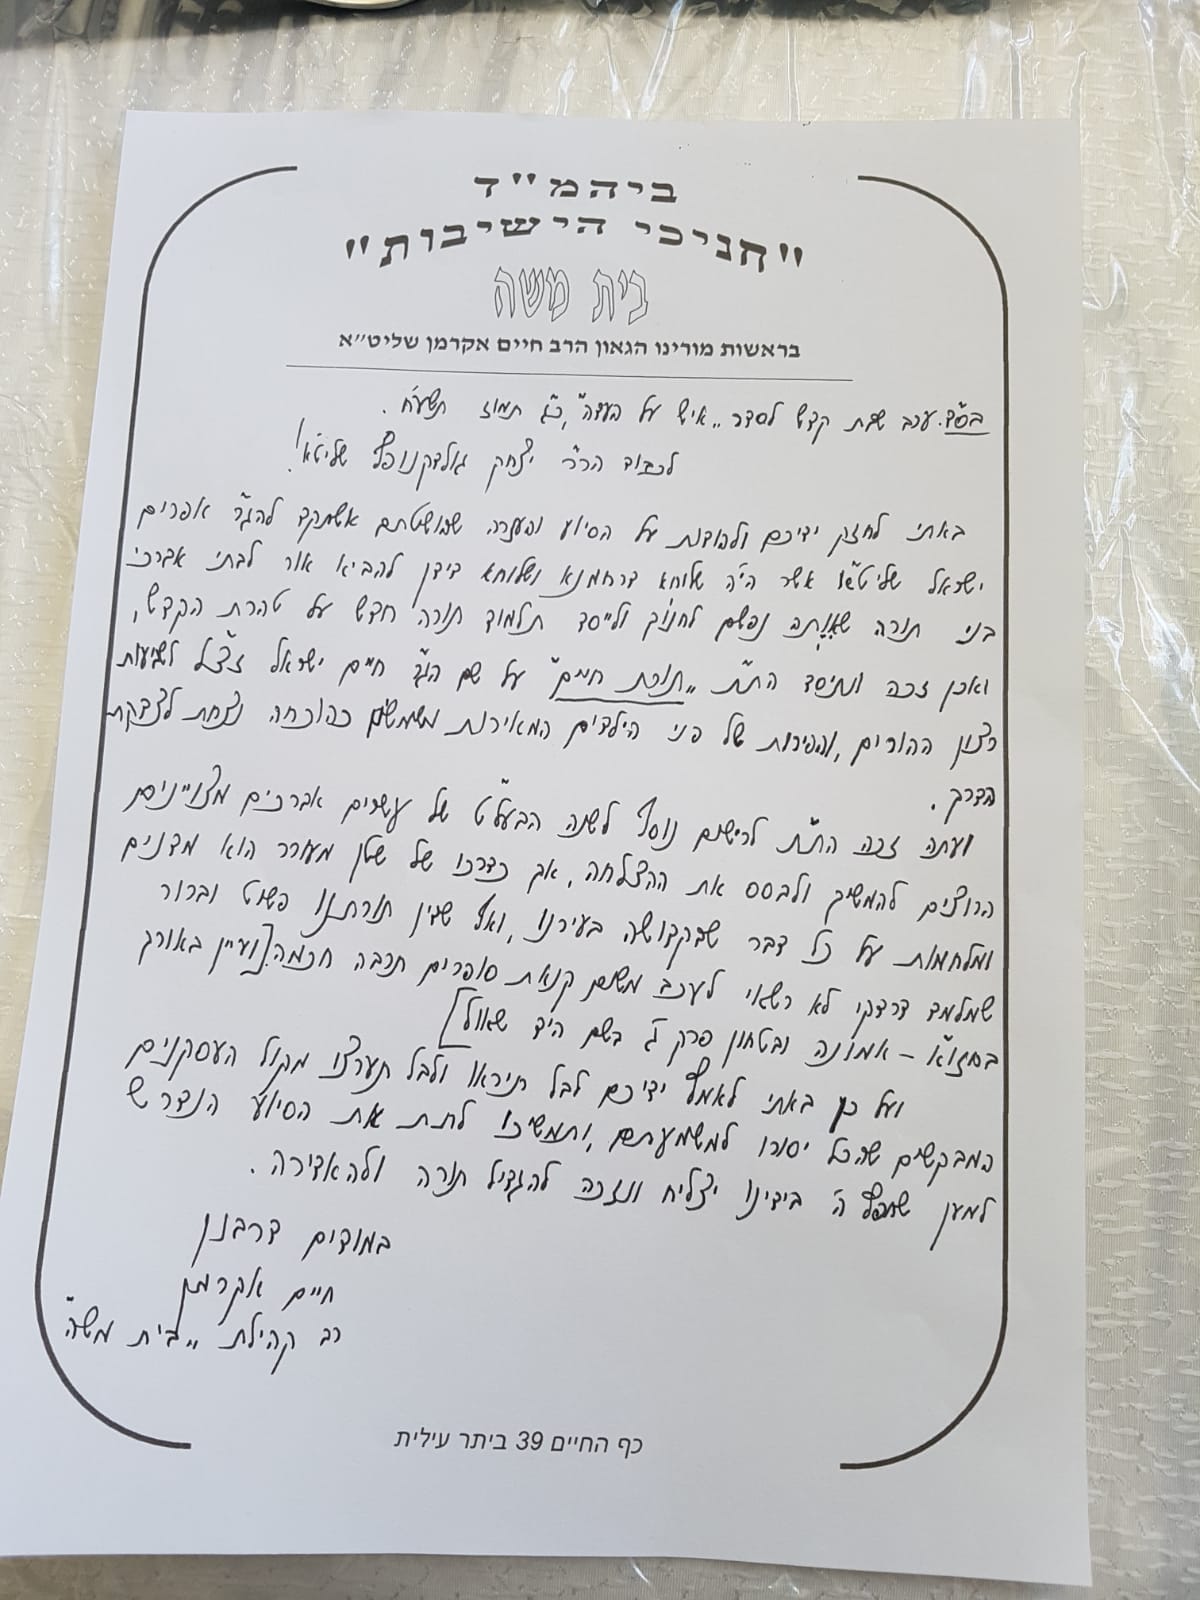 ביהמ"ד
"חניכי הישיבות"
בית משה
בראשות מורינו הגאון הרב חיים אקרמן שליט"א
בס"ד. ערב שבת קדש לסדר "איש על העדה", כ"ג תמוז תשע"ח.
לכבוד הר"ר יצחק גולדקנופף שליט"א!
באתי לחזק ידיכם ולהודות על הסיוע והעזרה שהושטתם אשתקד להג"ר אפרים
ישראל שליט"א אשר הי' שלוחא דרחמנא ושלוחא דידן להביא אור לבתי אברכי
בני תורה שאִוְּתָה נפשם לחנוך ולייסד תלמוד תורה חדש על טהרת הקדש,
ואכן זכה ונתיסד הת"ת "תורת חיים" על שם הג"ר חיים ישראל זצ"ל לשביעות
רצון ההורים, והפירות של פני הילדים המאירות משמשים כהוכחה נצחת לצדקת
הדרך.
ועתה זכה הת"ת לרישום נוסף לשנה הבעל"ט של עשרים אברכים מצויינים
הרוצים להמשיך ולבסס את ההצלחה, אך כדרכו של שטן מעורר הוא מדנים
ומלחמות על כל דבר שבקדושה בעירנו, ואף שדין תורתנו פשוט וברור
שמלמד דרדקי לא רשאי לעכב משום קנאת סופרים תרבה חכמה. [ועיין באורך
בחזו"א – אמונה ובטחון פרק ג' בשם היד שאול]
ועל כן באתי לאמץ ידיכם לבל תיראו ולבל תערצו מקול העסקנים
המבקשים שהכל יסורו למשמעתם, ותמשיכו לתת את הסיוע הנדרש
למען שחפץ ה' בידינו יצליח ונזכה להגדיל תורה ולהאדירה.
במודים דרבנן
חיים אקרמן
רב קהילת "בית משה"
כף החיים 39 ביתר עילית